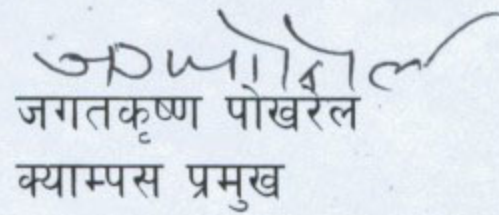 जगतकृष्ण पोखरेल
क्याम्पस प्रमुख